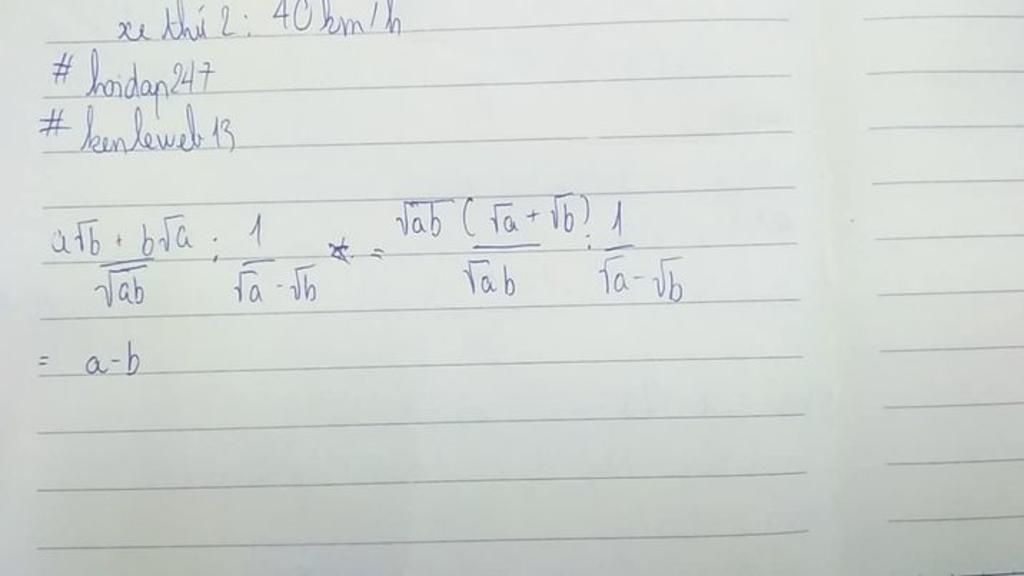 xe thứ 2: 40 km/h
# hoidap247
# kenleweb13
a√b + b√a / √ab : 1 / √a - √b = √ab (√a + √b) / √ab : 1 / √a - √b
= a - b